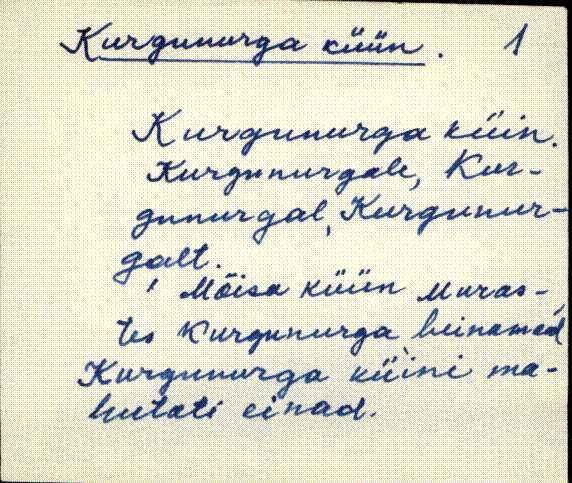 Kurgunurga küün. 1
Kurgunurga küin.
Kurgunurgale, Kur-
gunurgal, Kurgunur-
galt.
Mõisa küün Muras-
tes Kurgunurga heinamaad
Kurgunurga küini ma-
hutati einad.